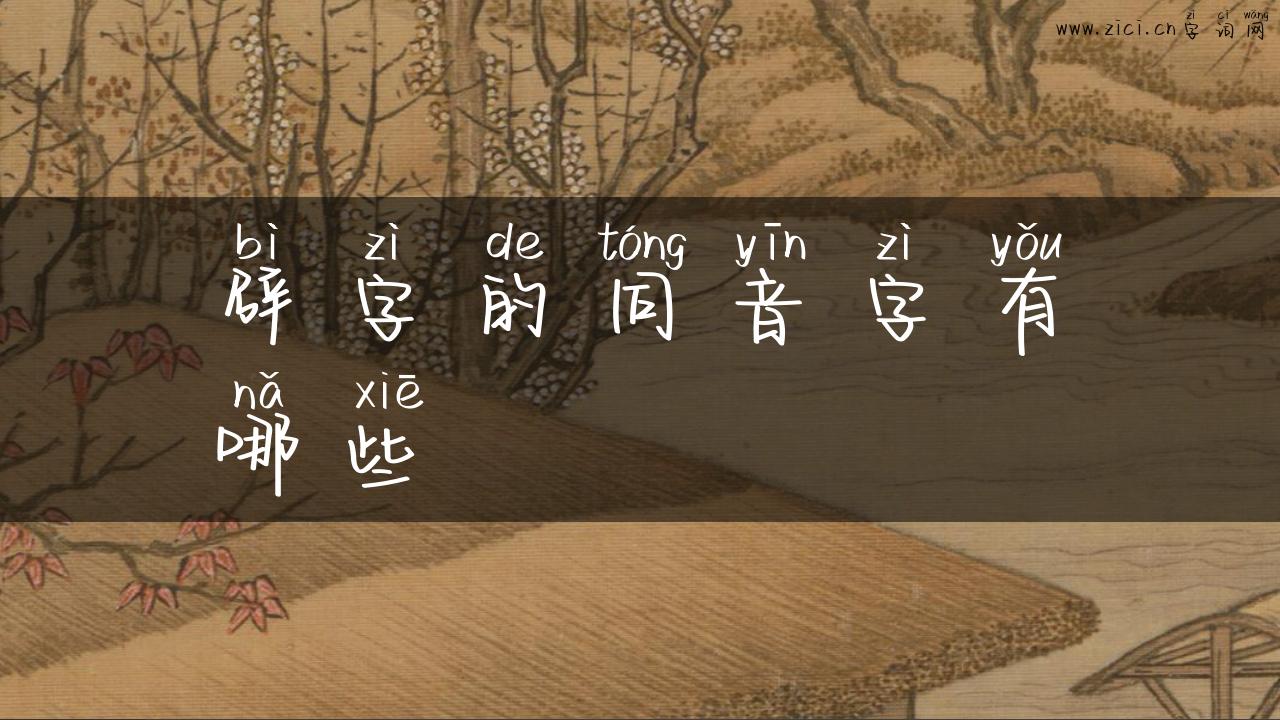 zì cí wǎng
www.zici.cn字词网
bì zì de tóng yīn zì yǒu
辟字的同音字有
nǎ xiē
哪些